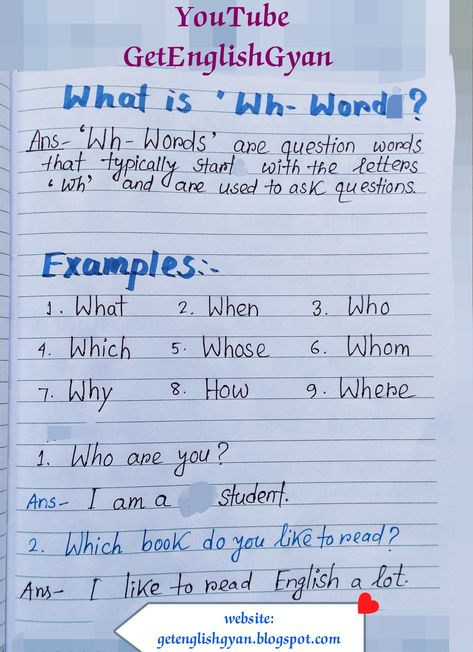 YouTube
GetEnglishGyan
What is 'Wh-Word ?
Ans- 'Wh-Words' are question words
that typically start with the letters
'Wh' and are used to ask questions.
Examples:-
1. What 2. When 3. Who
4. Which 5. Whose 6. Whom
7. Why 8. How 9. Where
1. Who are you?
Ans- I am a student.
2. Which book do you like to read?
Ans- I like to read English a lot.
website:
getenglishgyan.blogspot.com